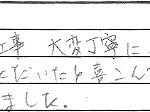 工事 大変丁寧に
ただいたと喜こん
ました。